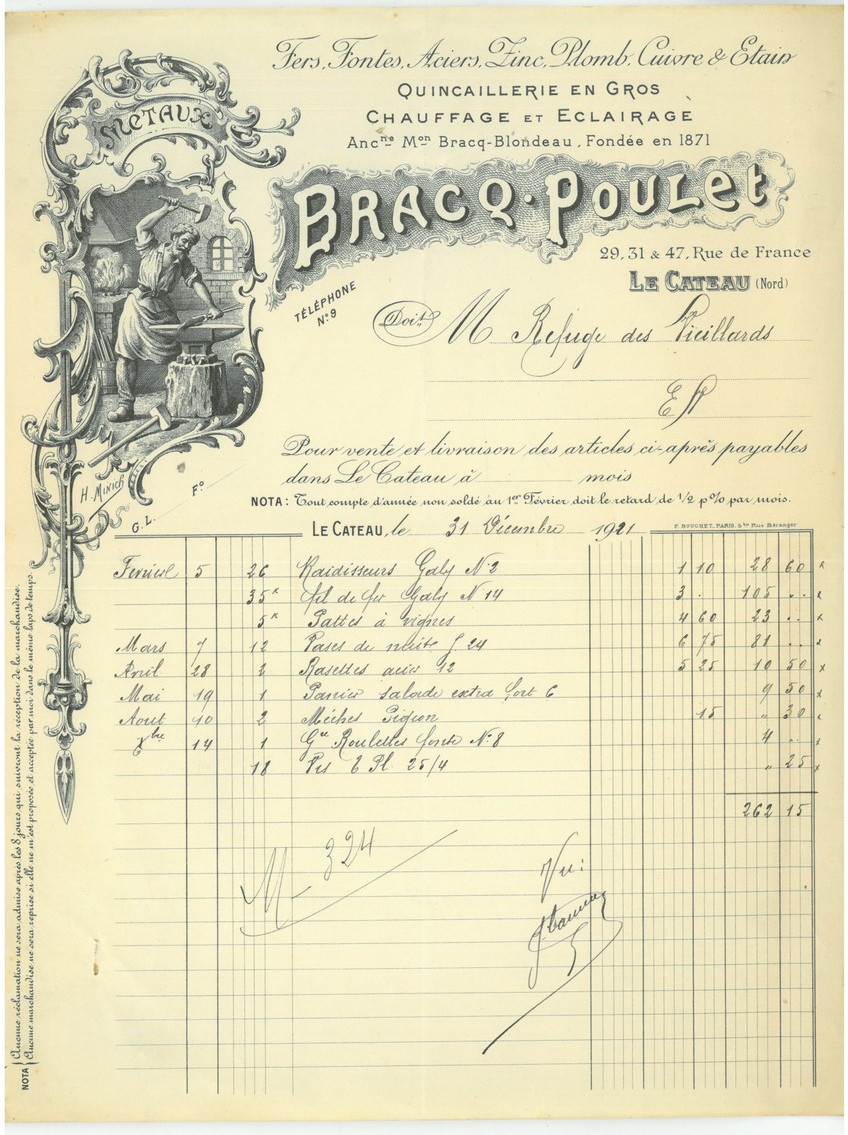 Fers, Fontes, Aciers, Zinc, Plomb, Cuivre & Etain
QUINCAILLERIE EN GROS
CHAUFFAGE ET ECLAIRAGE
Ancne Mon Bracq-Blondeau, Fondée en 1871
METAUX
BRACQ-POULET
29, 31 & 47, Rue de France
LE CATEAU (Nord)
TÉLÉPHONE
No 9
Doit M Refuge des Vieillards
EV
Pour vente et livraison des articles ci-après payables
dans Le Cateau à mois
H. Minich
G.L. Fo
NOTA: Tout compte d'année non soldé au 1er Février doit le retard de 1/2 p% par mois.
LE CATEAU, le 31 Décembre 1921
F. BOUCHET, PARIS, 5 bis Rue Béranger
Fevrier 5 26 Raidisseurs Galv No 2 1 10 28 60 x
35 K fil de fer Galv No 14 3 . 105 .. x
5 K Pattes à vignes 4 60 23 .. x
Mars 7 12 Vases de nuit f 24 6 75 81 .. x
Avril 28 2 Rasettes acier 12 5 25 10 50 x
Mai 19 1 Panier salade extra fort 6 9 50 x
Aout 10 2 Mèches Pigeon 15 " 30 x
Xbre 14 1 Gre Roulettes fonte No 8 4 .. x
18 Vis 6 Pl. 25/4 " 25 x
262 15
M 324
Vu:
NOTA { Aucune réclamation ne sera admise après les 8 jours qui suivront la réception de la marchandise.
Aucune marchandise ne sera reprise si elle ne m'est proposée et acceptée par moi dans le même laps de temps.